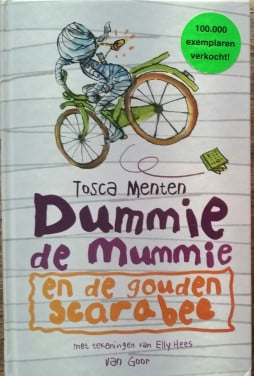 100.000
exemplaren
verkocht!
Tosca Menten
Dummie
de Mummie
en de gouden
scarabee
met tekeningen van Elly Hees
van Goor